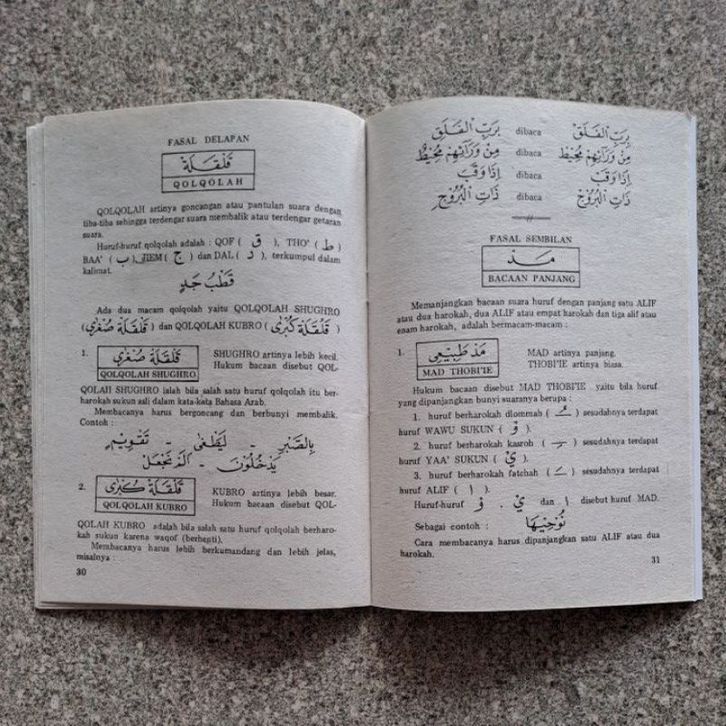 FASAL DELAPAN
قَلْقَلَةْ
QOLQOLAH
QOLQOLAH artinya goncangan atau pantulan suara dengan
tiba-tiba sehingga terdengar suara membalik atau terdengar getaran
suara.
Huruf-huruf qolqolah adalah : QOF ( ق ), THO' ( ط )
BAA' ( ب ), JIEM ( ج ) dan DAL ( د ), terkumpul dalam
kalimat.
قَطْبُ جَدٍ
Ada dua macam qolqolah yaitu QOLQOLAH SHUGHRO
(قَلْقَلَةْ صُغْرٰي) dan QOLQOLAH KUBRO (قَلْقَلَةْ كُبْرٰى)
1. قَلْقَلَةْ صُغْرٰي SHUGHRO artinya lebih kecil.
QOLQOLAH SHUGHRO. Hukum bacaan disebut QOL-
QOLAH SHUGHRO ialah bila salah satu huruf qolqolah itu ber-
harokah sukun asli dalam kata-kata Bahasa Arab.
Membacanya harus bergoncang dan berbunyi membalik.
Contoh :
بِالصَّبْرِ - لَيَطْغٰى - تَقْوِيْمٍ
يَدْخُلُوْنَ - اَلَمْ نَجْعَلْ
2. قَلْقَلَةْ كُبْرٰى KUBRO artinya lebih besar.
QOLQOLAH KUBRO Hukum bacaan disebut QOL-
QOLAH KUBRO adalah bila salah satu huruf qolqolah berharo-
kah sukun karena waqof (berhenti).
Membacanya harus lebih berkumandang dan lebih jelas,
misalnya :
30
بِرَبِّ الْفَلَقِ dibaca بِرَبِّ الْفَلَقْ
مِنْ وَرَآئِهِمْ مُحِيْطٌ dibaca مِنْ وَرَآئِهِمْ مُحِيْطْ
اِذَا وَقَبَ dibaca اِذَا وَقَبْ
ذَاتِ الْبُرُوْجِ dibaca ذَاتِ الْبُرُوْجْ
FASAL SEMBILAN
مَدّ
BACAAN PANJANG
Memanjangkan bacaan suara huruf dengan panjang satu ALIF
atau dua harokah, dua ALIF atau empat harokah dan tiga alif atau
enam harokah, adalah bermacam-macam :
1. مَدّ طَبِيْعِى MAD artinya panjang.
MAD THOBI'IE THOBI'IE artinya biasa.
Hukum bacaan disebut MAD THOBI'IE yaitu bila huruf
yang dipanjangkan bunyi suaranya berupa :
1. huruf berharokah dlommah ( ـُ ) sesudahnya terdapat
huruf WAWU SUKUN ( وْ )
2. huruf berharokah kasroh ( ـِ ) sesudahnya terdapat
huruf YAA' SUKUN ( يْ )
3. huruf berharokah fatchah ( ـَ ) sesudahnya terdapat
huruf ALIF ( ا )
Huruf-huruf يْ . وْ dan ا disebut huruf MAD.
Sebagai contoh : نُوْحِيْهَا
Cara membacanya harus dipanjangkan satu ALIF atau dua
harokah.
31